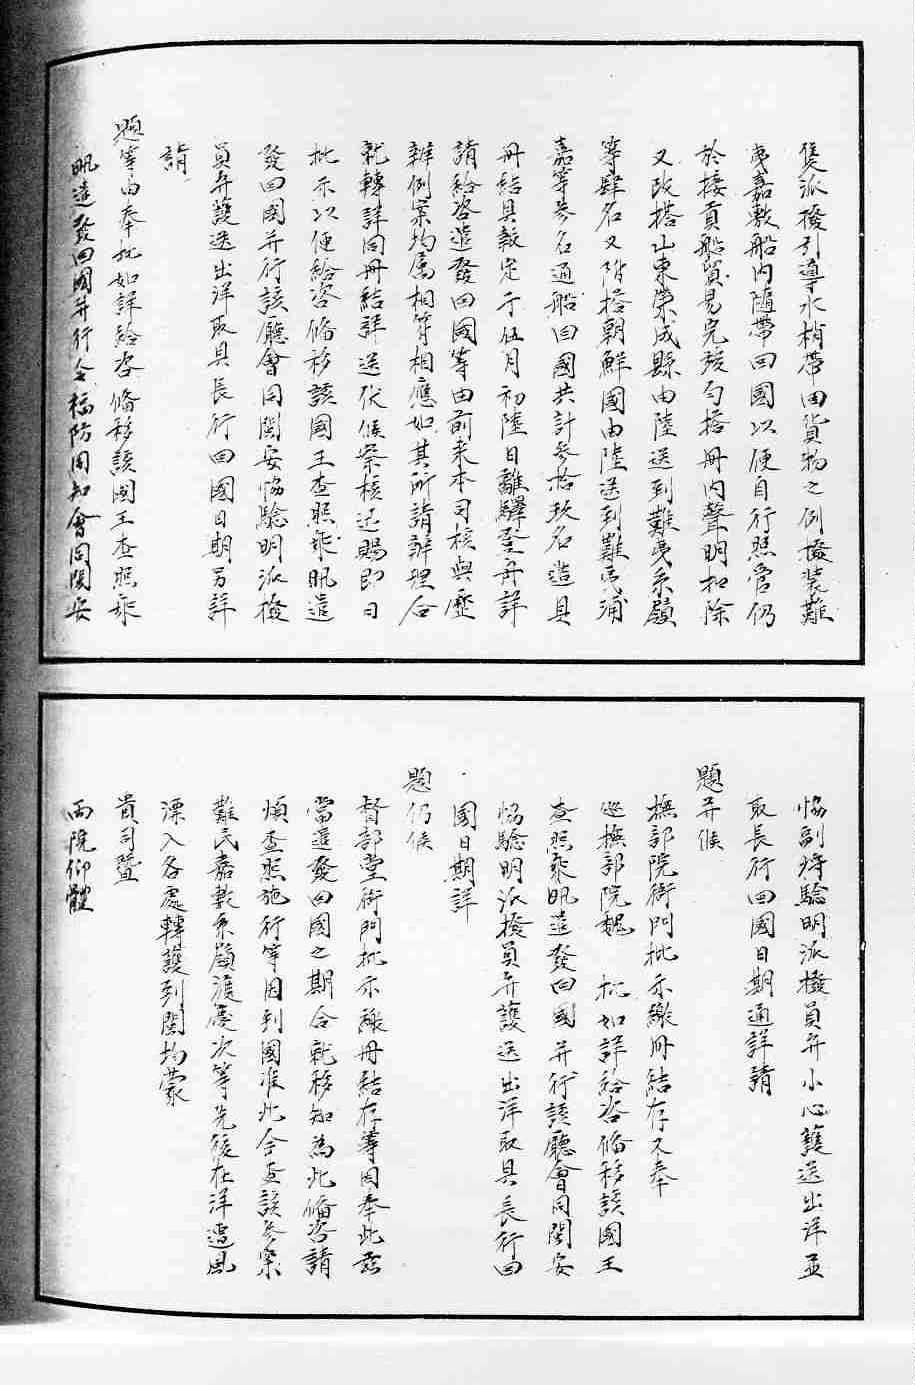 隻派撥引導水梢帶回貨物之例擬裝難
夷嘉數船內隨帶回國以便自行照管仍
於接貢船貿易完竣勻搭冊內聲明扣除
又改搭山東榮成縣由陸送到難夷系嶺
等肆名又附搭朝鮮國由陸送到難夷浦
嘉等參名通船回國共計參拾玖名造具
冊結具報定于伍月初陸日離驛登舟詳
請給咨遣發回國等由前來本司核與歷
辦例案均属相符相應如其所請辦理合
就轉詳同冊結詳送伏候察核迅賜即日
批示以便給咨備移該國王查照飛帆遣
發回國并行該廳會同閩安協驗明派撥
員弁護送出洋取具長行回國日期另詳
請
題等由奉批如詳給咨備移該國王查照飛
帆遣發回國并行令福防同知會同閩安
協副將驗明派撥員弁小心護送出洋並
取長行回國日期通詳請
題并候
撫部院衙門批示繳冊結存又奉
巡撫部院魏 批如詳給咨備移該國王
查照飛帆遣發回國并行該廳會同閩安
協驗明派撥員弁護送出洋取具長行回
國日期詳
題仍候
督部堂衙門批示繳冊結存等因奉此茲
當遣發回國之期合就移知為此備咨請
煩查照施行等因到國准此合查該參案
難民嘉數系嶺渡慶次等先後在洋遭風
漂入各處轉護到閩均蒙
貴司暨
兩院仰體